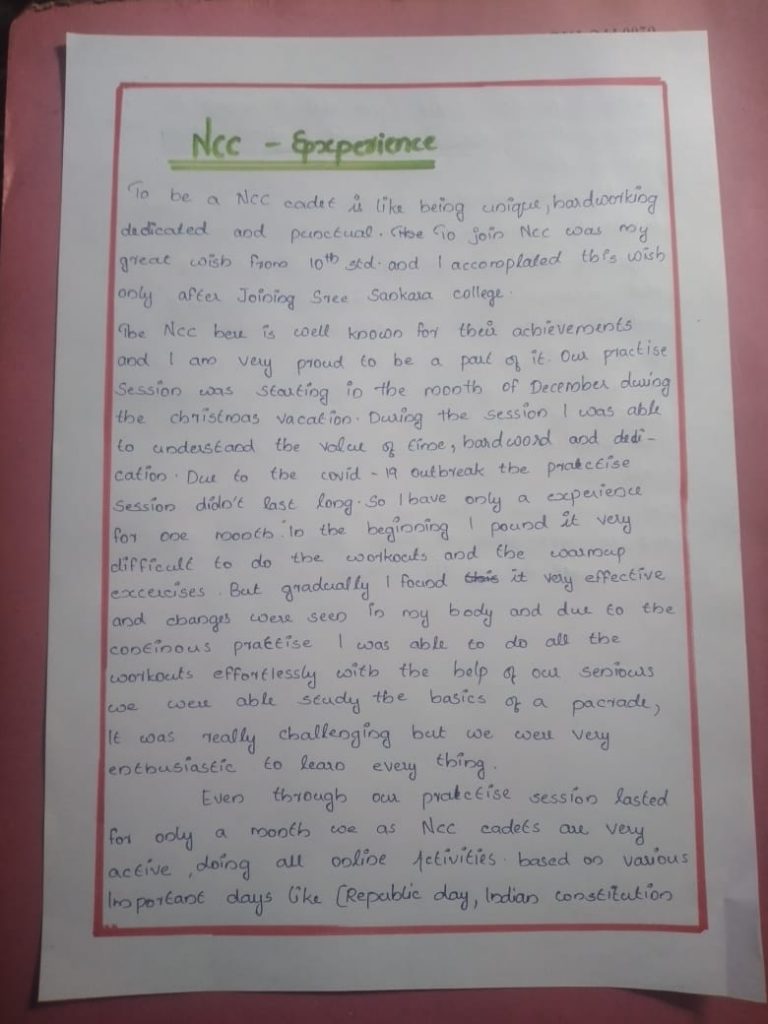 NCC - Experience
To be a NCC cadet is like being unique, hardworking
dedicated and punctual. The To join NCC was my
great wish from 10th std. and I accomplated this wish
only after Joining Sree Sankara college.
The NCC here is well known for their achievements
and I am very proud to be a part of it. Our practise
Session was starting in the month of December during
the christmas vacation. During the session I was able
to understand the value of time, hardword and dedi-
cation. Due to the covid - 19 outbreak the prakctise
Session didn't last long. So I have only a experience
for one month. In the beginning I pound it very
difficult to do the workouts and the warmup
exccercises. But gradually I found this it very effective
and changes were seen in my body and due to the
continous prattise I was able to do all the
workouts effortlessly with the help of our senious
we were able study the basics of a pacrade,
It was really challenging but we were very
enthusiastic to learn every thing.
Even through our prakctise session lasted
for only a month we as NCC cadets are very
active, doing all online Activities. based on various
Important days like (Republic day, Indian constitution